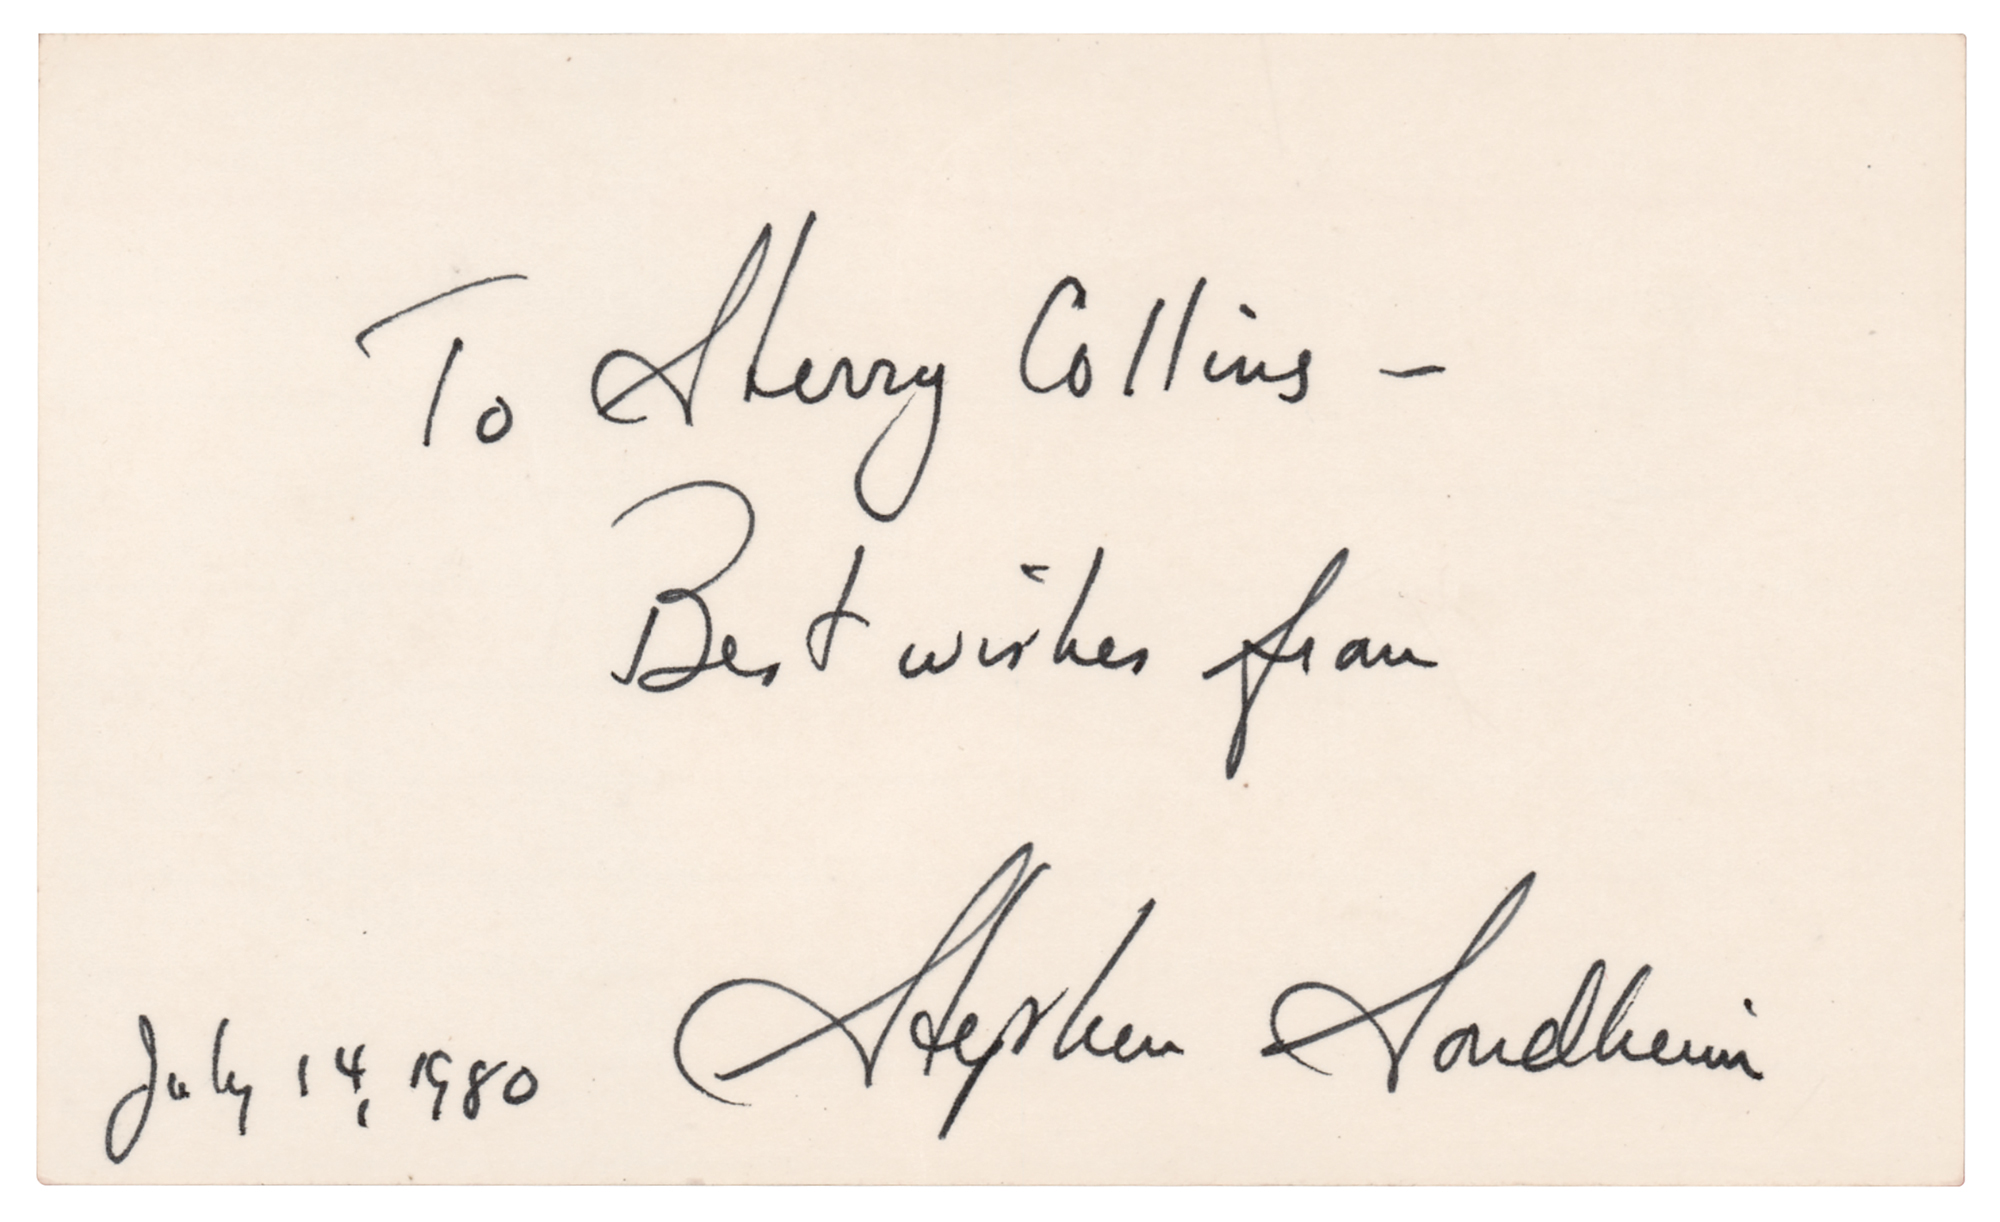 To Sherry Collins –
Best wishes from
Stephen Sondheim
July 14, 1980